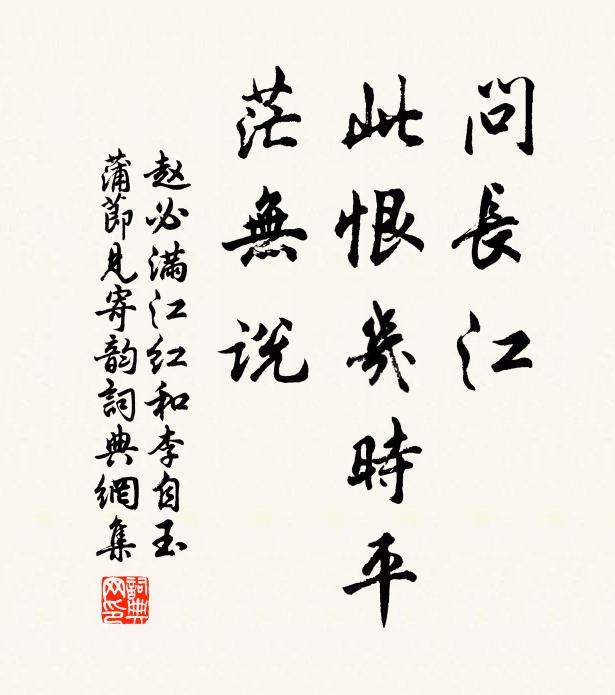 問長江
此恨幾時平
茫無説
赵必满江红和李自玉
蒲節見寄韵詞典網集
詞典網印